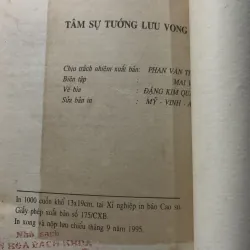 TÂM SỰ TƯỚNG LƯU VONG
Chịu trách nhiệm xuất bản: PHAN VĂN
Biên tập : MAI
Vẽ bìa : ĐẶNG KIM
Sửa bản in : MỸ - VINH -
In 1000 cuốn khổ 13x19cm, tại Xí nghiệp in báo Cao su
Giấy phép xuất bản số 175/CXB
In xong và nộp lưu chiểu tháng 9 năm 1995.
Nhà sách
BÁCH KHOA